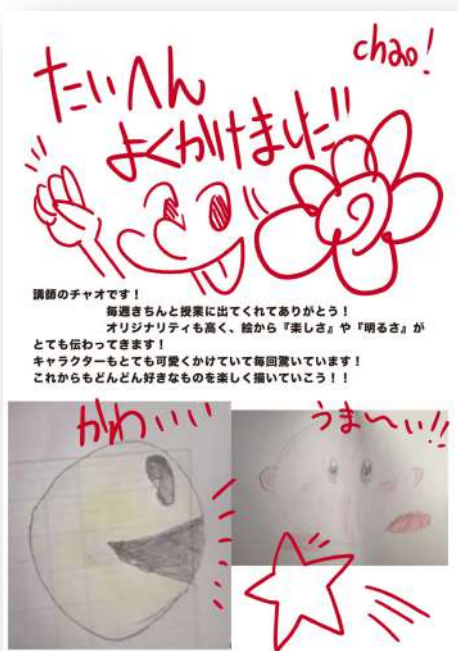 chao!
たいへん
よくかけました!!
講師のチャオです！
毎週きちんと授業に出てくれてありがとう！
オリジナリティも高く、絵から『楽しさ』や『明るさ』が
とても伝わってきます！
キャラクターもとても可愛くかけていて毎回驚いています！
これからもどんどん好きなものを楽しく描いていこう！！
かわいい
うま〜い!!